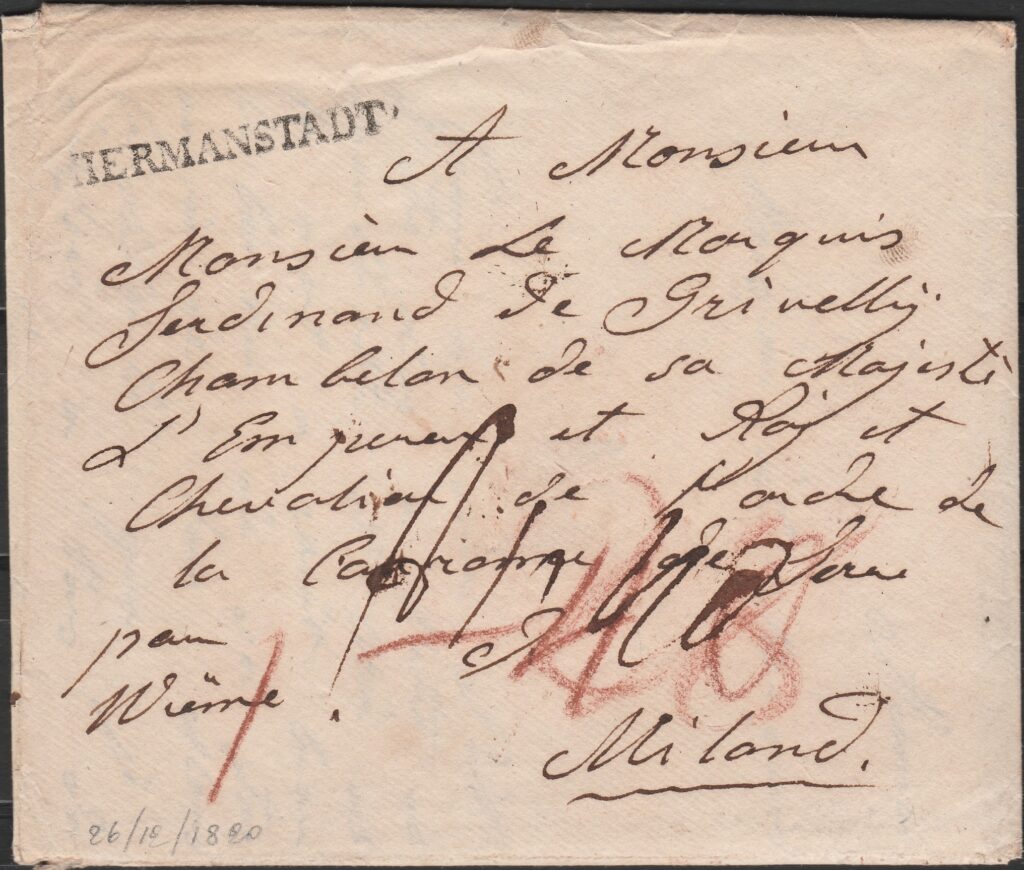 HERMANSTADT
A Monsieur
Monsieur Le Marquis
Ferdinand de Grivelly
Chambelan de sa Majesté
L'Empereur et Roj et
Chevalier de l'ordre de
la Couronne de Ferre
par
Wiënne.
à
Miland.
26/12/1820